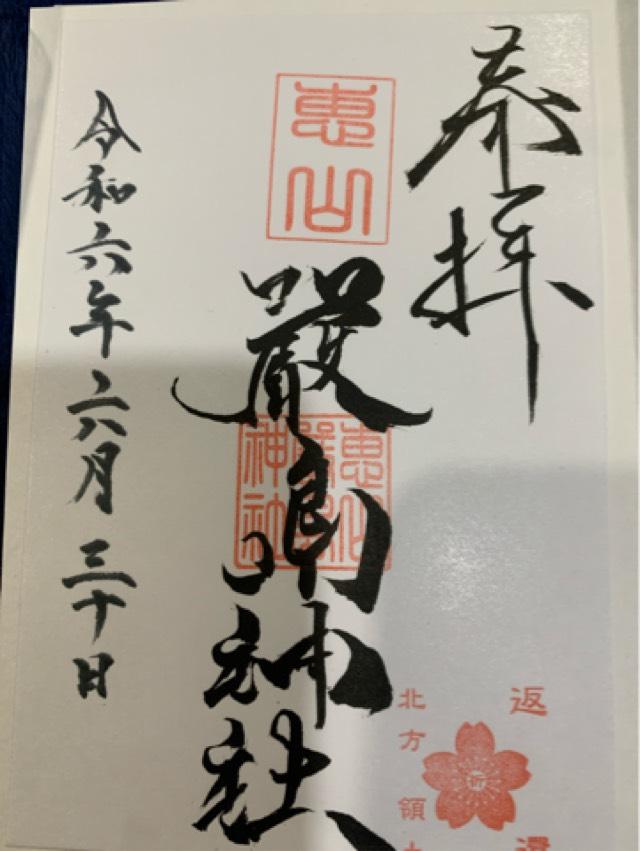 奉拝
恵山
厳島神社
恵山
神社
令和六年六月三十日
返還
北方領土